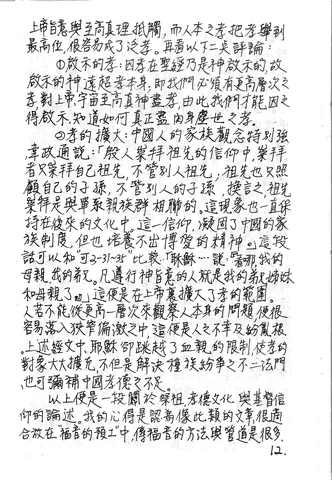 上帝旨意與至高真理抵觸，而人本之孝把孝舉到
最高位，很容易成了泛孝。再看以下二矣詳論：
①啟示的孝：因孝在聖經乃是神啟示的，故
啟示的神遠超孝本身，即我們必須有更高層次之
孝對上帝，宇宙至高真神盡孝，由此我們才能因之
得啟示，知道如何真正盡肉身塵世之孝。
②孝的擴大：中國人的家族觀念特別強，
韋政通說：「殷人崇拜祖先的信仰中，崇拜
者只崇拜自己祖先，不管別人祖先；祖先也只照
顧自己的子孫，不管別人的子孫，換言之，祖先
崇拜是與單系親族群相聯的。這現象也一直保
持在後來的文化中。這一信仰，凝固了中國的家
族制度，但也培養不出博愛的精神。」這段
話可以和可3-31-35比較：「耶穌……說：看哪，我的
母親，我的弟兄。凡遵行神旨意的人就是我的弟兄姊妹
和母親了。」這便是在上帝裏擴大了孝的範圍。
人若不能從更高一層次來觀察人本身的問題，便很
容易落入狹窄偏激之中，這便是人之不幸及紛亂根
。上述經文中，耶穌卻跳越了血親的限制，使孝的
對象大大擴充，不但是解決種族紛爭之不二法門，
也可彌補中國孝德之不足。
以上便是一段關於祭祖、孝德文化與基督信
仰的論述。我的心得是認為像此類的文章，很適
合放在"福音的預工"中，傳福音的方法與管道是很多，
12.